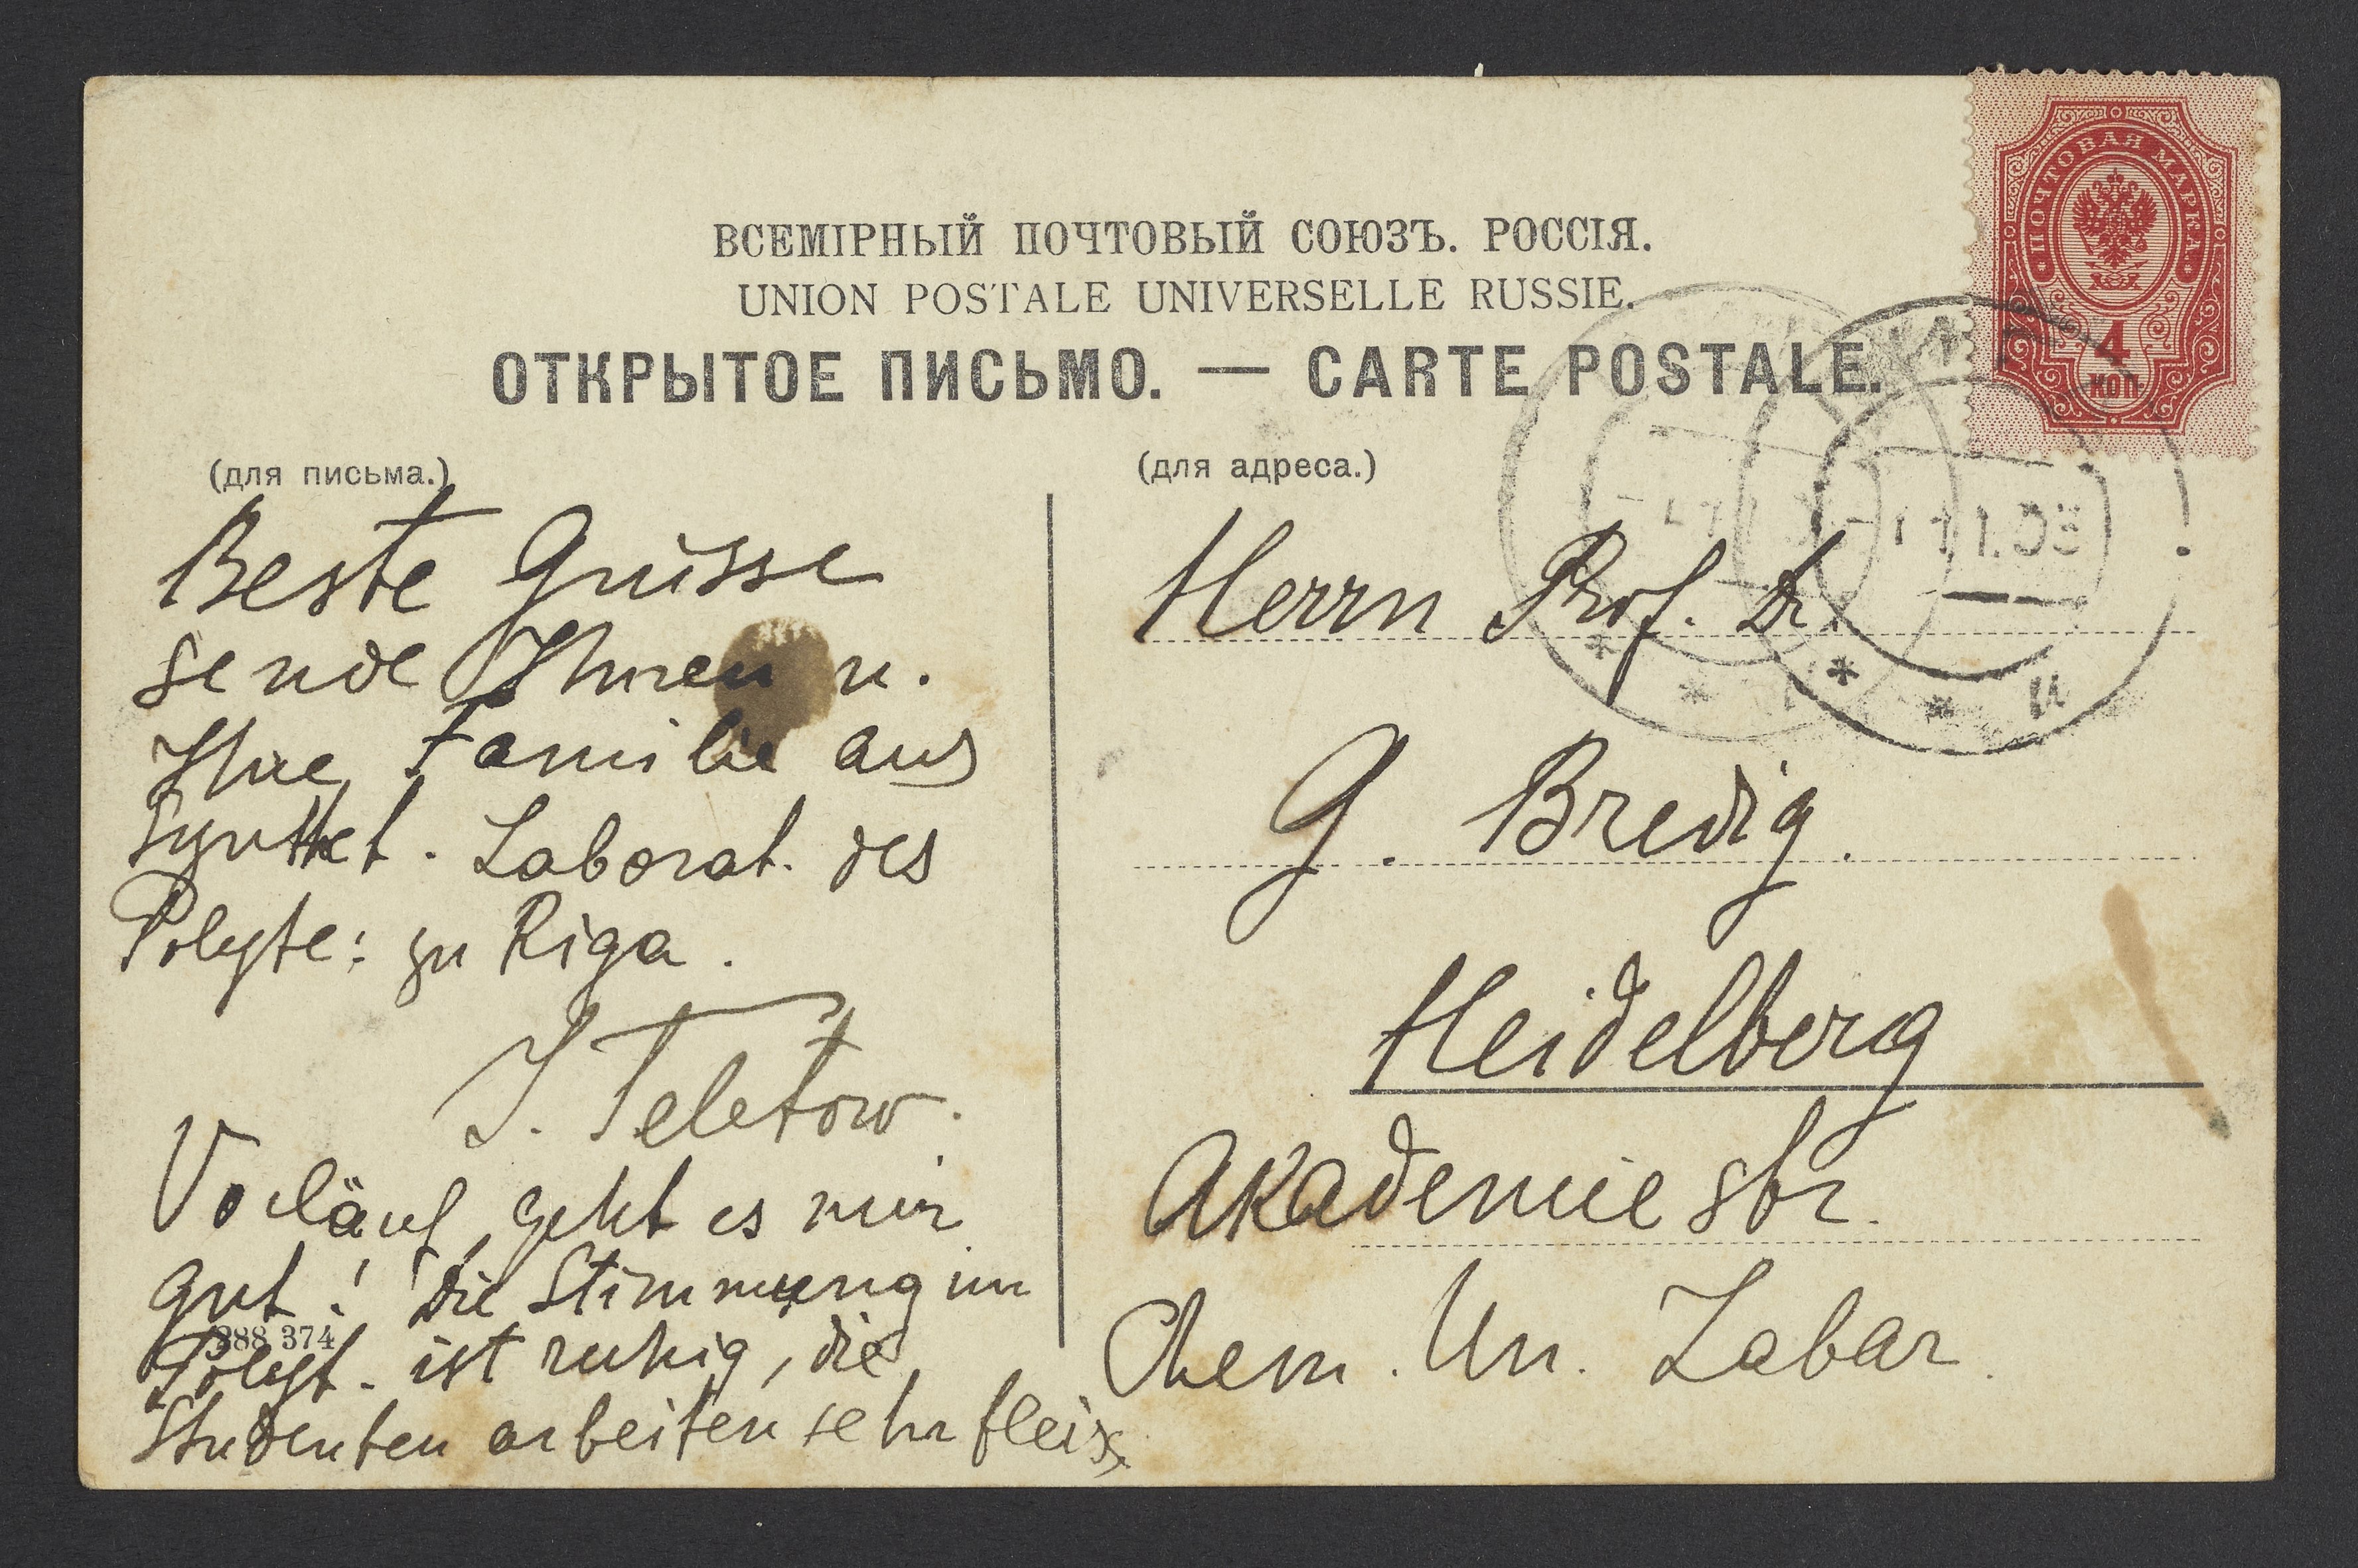 ВСЕМІРНЫЙ ПОЧТОВЫЙ СОЮЗЪ. РОССІЯ.
UNION POSTALE UNIVERSELLE RUSSIE.
ОТКРЫТОЕ ПИСЬМО. — CARTE POSTALE.
ПОЧТОВАЯ МАРКА
4
КОП.
(для письма.)
Beste Grüsse
sende Ihnen u.
Ihre Familie aus
Synthet. Laborat. des
Polyte: zu Riga.
J. Teletow.
Vorläuf. geht es mir
gut! Die Stimmung im
Polyt. ist ruhig, die
Studenten arbeiten sehr
388 374
(для адреса.)
Herrn Prof. Dr.
G. Bredig.
Heidelberg
Akademiestr.
Chem. Un. Labor.